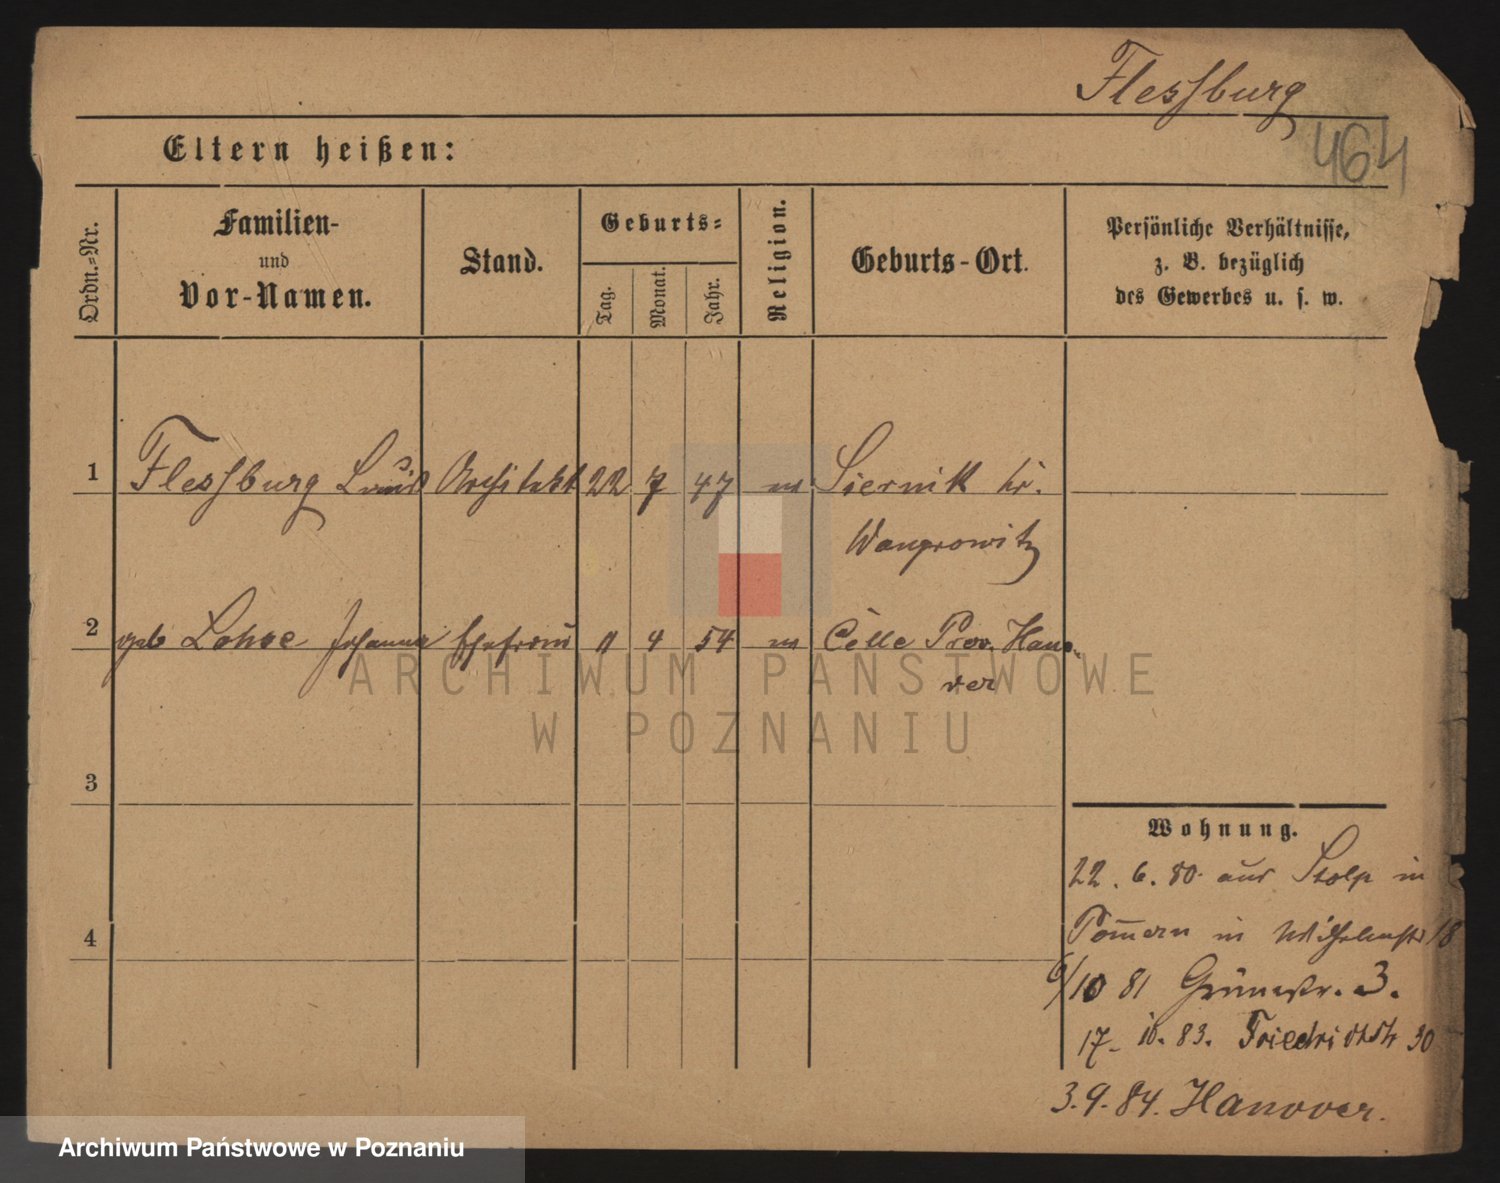 Flessburg
464
Eltern heißen:
Ordn.-Nr.
Familien-
und
Vor-Namen.
Stand.
Geburts-
Tag.
Monat.
Jahr.
Religion.
Geburts-Ort.
Persönliche Verhältnisse,
z. B. bezüglich
des Gewerbes u. s. w.
1 Flessburg Louis Architekt 22 7 47 m Siernik kr.
Wongrowitz
2 geb Lohse Johanna Ehefrau 11 4 54 m Celle Prov. Hano-
ver
ARCHIWUM PAŃSTWOWE
W POZNANIU
3
Wohnung.
22. 6. 80. aus Stolp in
4
Pom̅ern in Wilhelmstr 18
6/10 81 Grünstr. 3.
17. 10. 83. Friedrichstr 30
3. 9. 84. Hanover.
Archiwum Państwowe w Poznaniu